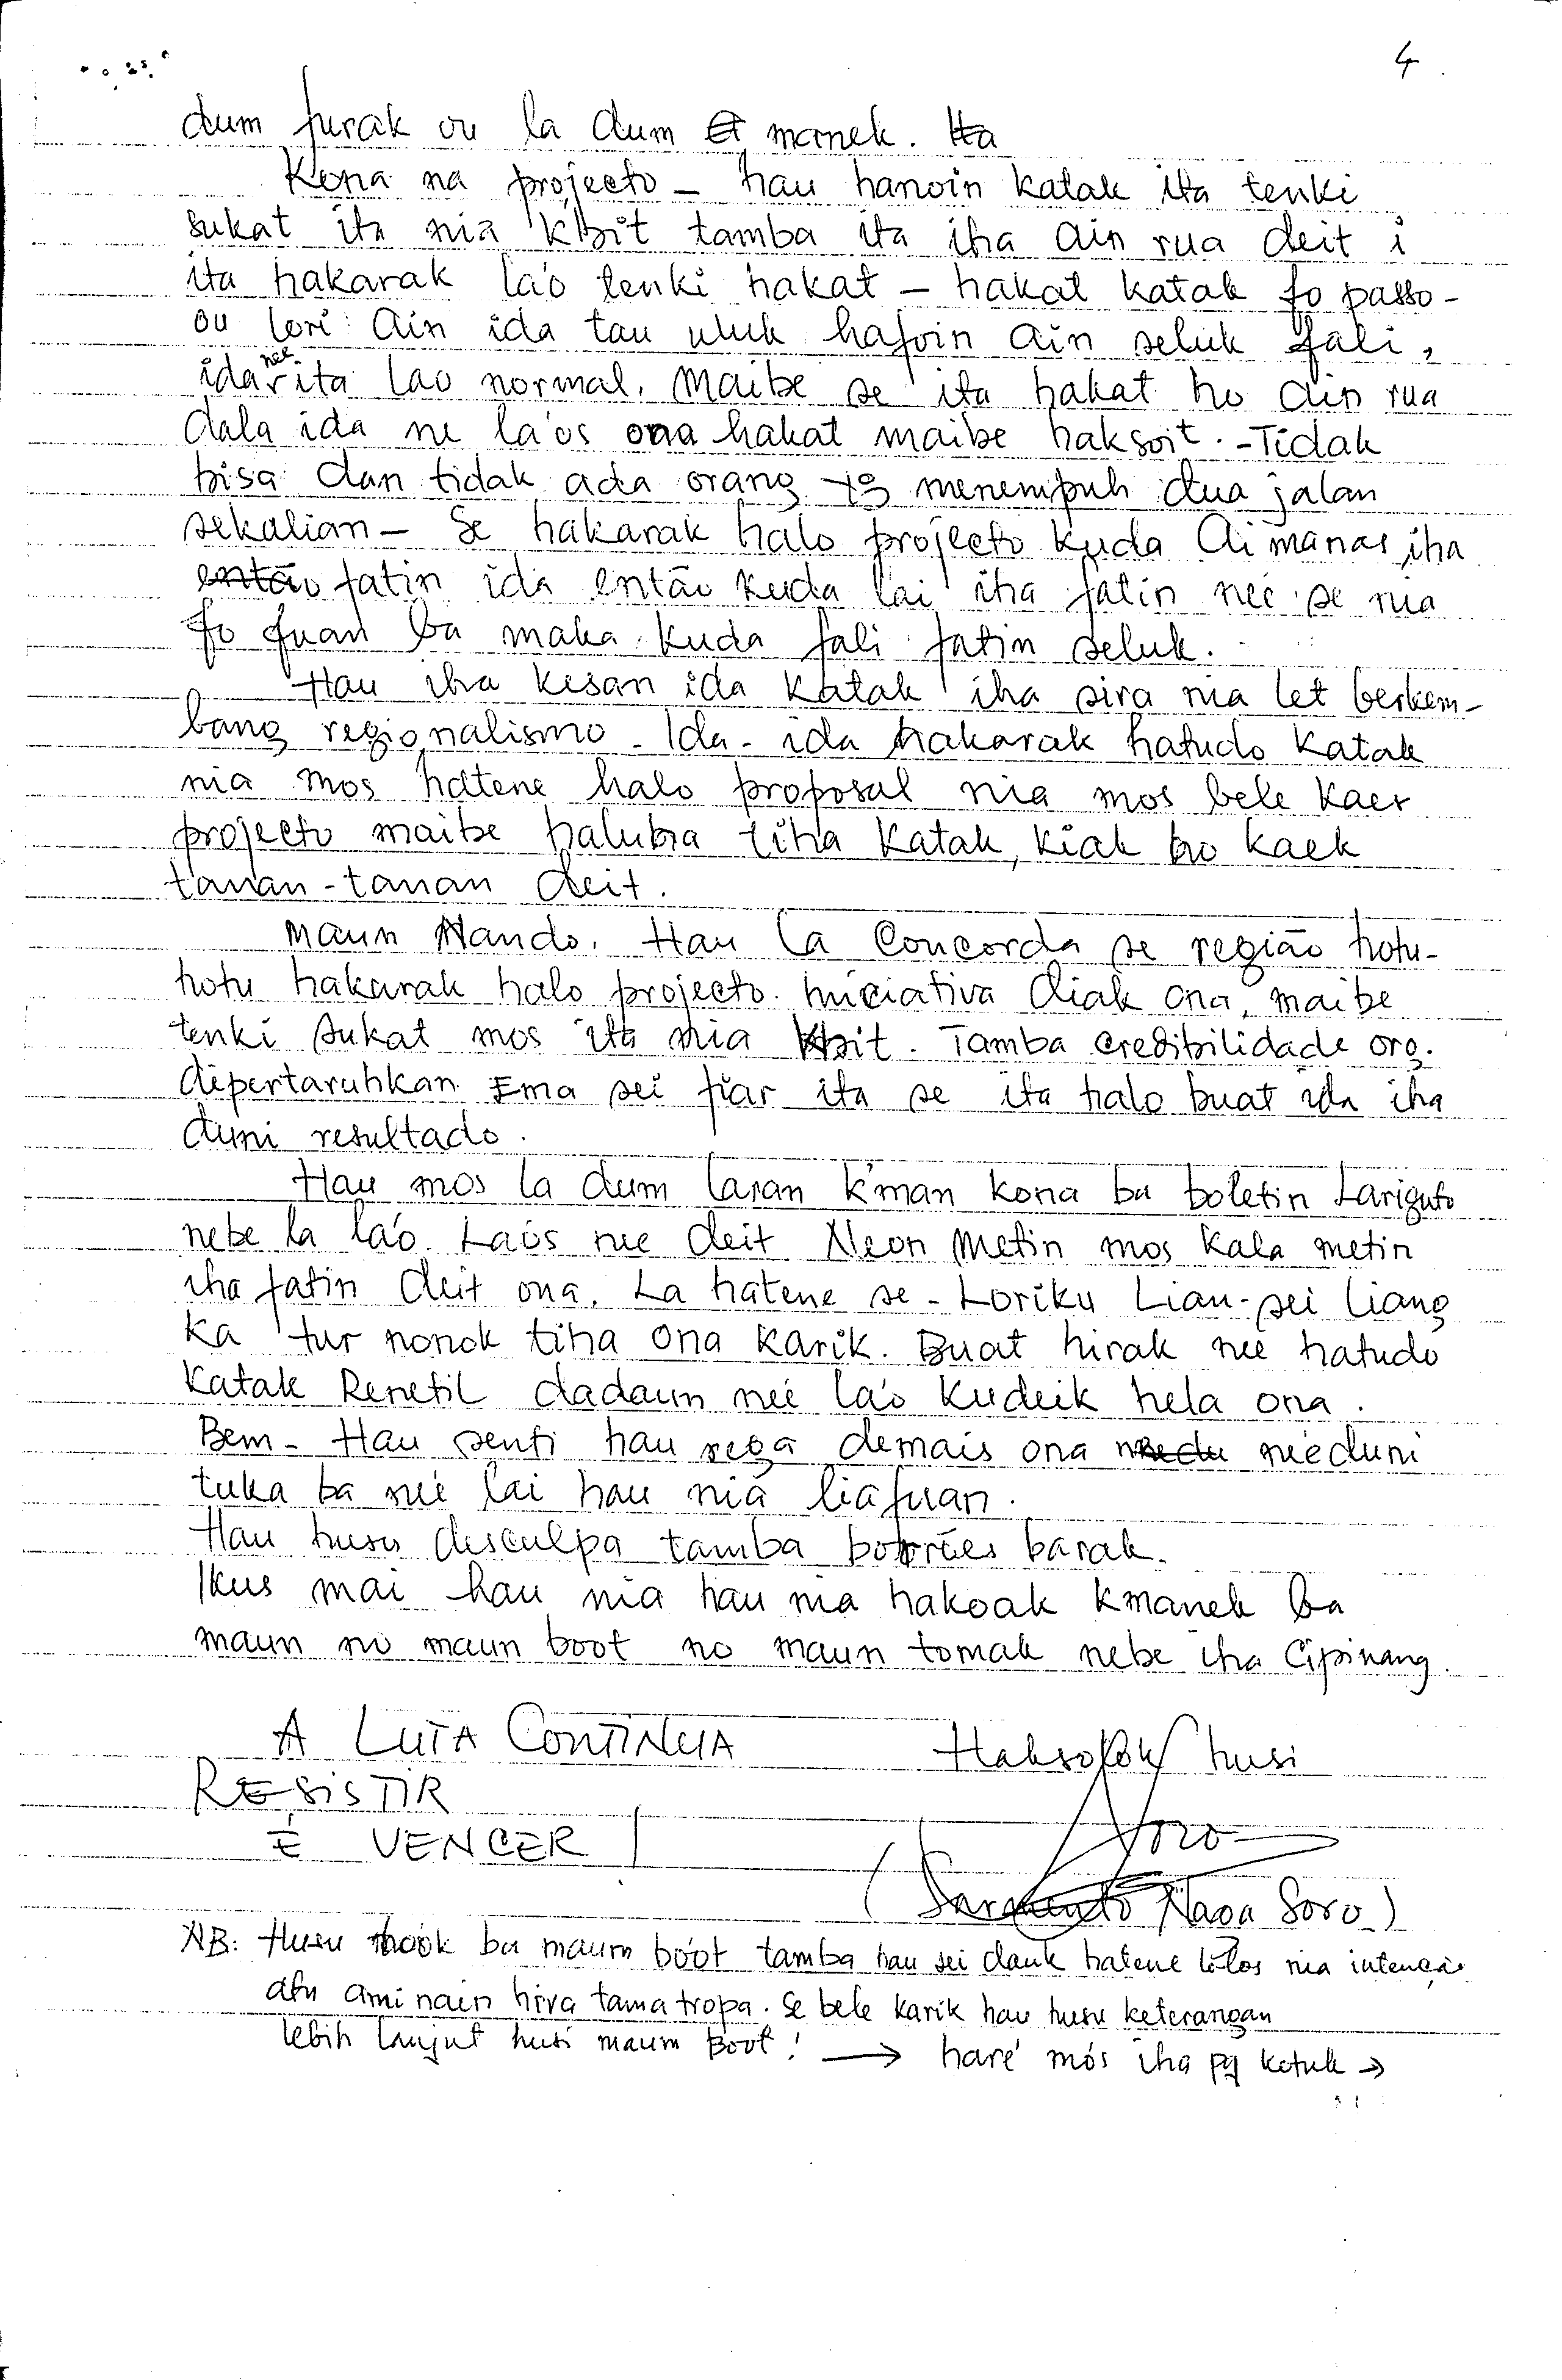 4
dum furak ou la dum manek.
Kona na projecto - hau hanoin katak ita tenki
sukat ita nia kbit tamba ita iha ain rua deit i
ita hakarak la'o tenki hakat - hakat katak fo passo -
ou lori ain ida tau uluk hafoin ain seluk fali,
ida nee ita lao normal. Maibe se ita hakat ho ain rua
dala ida ne la'os ona hakat maibe haksoit. - Tidak
bisa dan tidak ada orang yg menempuh dua jalan
sekalian - Se hakarak halo projecto kuda Aimanas iha
então fatin ida então kuda lai iha fatin neé se nia
fo fuan ba maka kuda fali fatin seluk.
Hau iha kesan ida katak iha sira nia let berkem-
bang regionalismo. Ida-ida hakarak hatudo katak
nia mos hatene halo proposal nia mos bele kaer
projecto maibe haluha tiha katak, kiak ho kaek
tanan-tanan deit.
Maun Nando. Hau la concorda se região hotu-
hotu hakarak halo projecto. Iniciativa diak ona, maibe
tenki sukat mos ita nia kbit. Tamba credibilidade org.
dipertaruhkan. Ema sei fiar ita se ita halo buat ida iha
duni resultado.
Hau mos la dum laran k'man kona ba boletin Lariguto
nebe la la'o. Laós nee deit Neon Metin mos kala metin
iha fatin deit ona. La hatene se - Loriku Lian - sei liang
ka tur nonok tiha ona karik. Buat hirak neé hatudo
katak Renetil dadaun neé la'o kudeik hela ona.
Bem - Hau senti hau rega demais ona neéduni
tuka ba neé lai hau nia liafuan.
Hau husu desculpa tamba borrões barak.
Ikus mai hau nia hau nia hakoak kmanek ba
maun no maun boot no maun tomak nebe iha Cipinang.
A LUTA CONTINUA
Haksolok husi
RESISTIR
É VENCER!
Soro
(Sarmento Naoa Soro)
NB: Husu took ba maun bóot tamba hau sei dauk hatene lolos nia intenção
atu ami nain hira tama tropa. Se bele karik hau husu keterangan
lebih lanjut husi maun Boot! → haré mós iha pg kotuk →